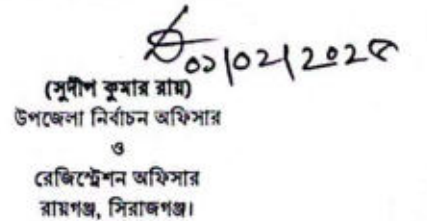 ০১/০২/২০২৫
(সুদীপ কুমার রায়)
উপজেলা নির্বাচন অফিসার
ও
রেজিস্ট্রেশন অফিসার
রায়গঞ্জ, সিরাজগঞ্জ।